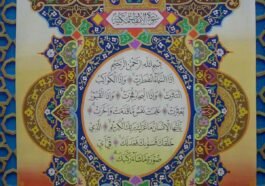 سورة الانفطار مكية
بسم الله الرحمن الرحيم
إذا السماء انفطرت وإذا الكواكب
انتثرت وإذا البحار فجرت وإذا القبور
بعثرت علمت نفس ما قدمت وأخرت
يأيها الإنسان ما غرك بربك الكريم الذي
خلقك فسوىك فعدلك في أي
صورة ما شاء ركبك